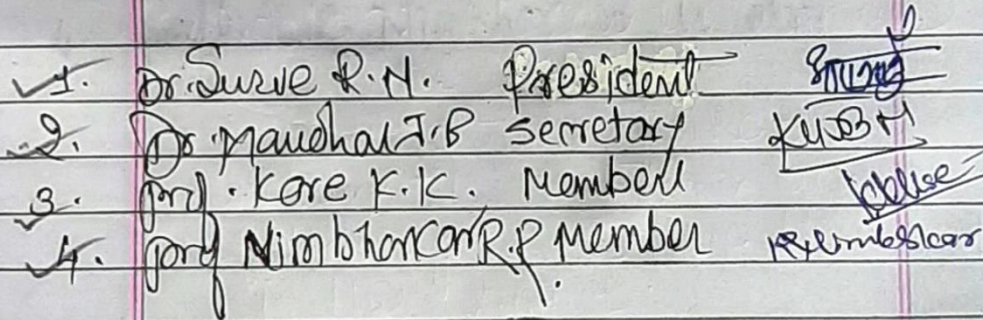 1. Dr. Surve R.N. President
2. Dr. Maudhal J.B Secretary
3. Prof. Kore K.K. Member
4. Prof Nimbhorkar R.P Member